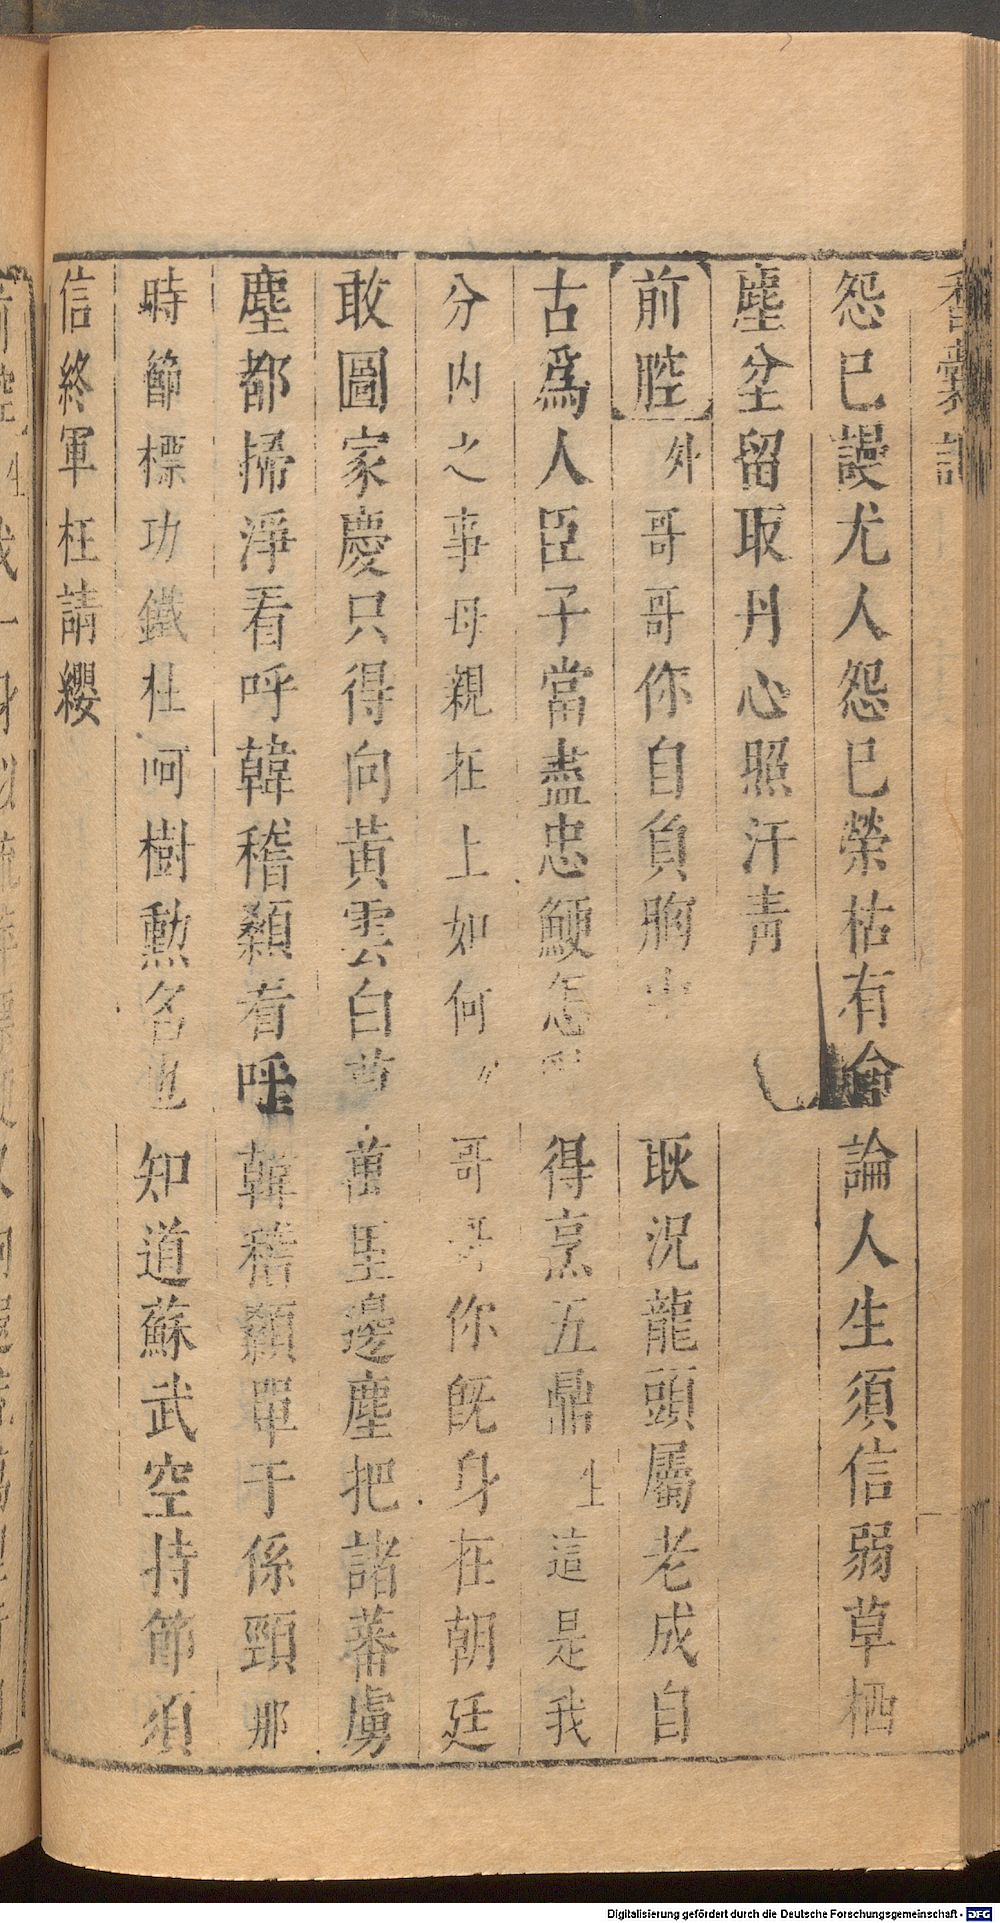 香囊記
怨已謾尤人怨已榮枯有命論人生須信弱草栖
塵坌留取丹心照汗青
前腔 外 哥哥你自負胸中耿況龍頭屬老成自
古爲人臣子當盡忠鯁怎得烹五鼎 生 這是我
分内之事母親在上如何 哥哥你既身在朝廷
敢圖家慶只得向黃雲白草萬里邊塵把諸蕃虜
塵都掃淨看呼韓稽顙看呼韓稽顙單于係頸那
時節標功鐵柱呵樹勳名也知道蘇武空持節須
信終軍枉請纓
Digitalisierung gefördert durch die Deutsche Forschungsgemeinschaft - DFG